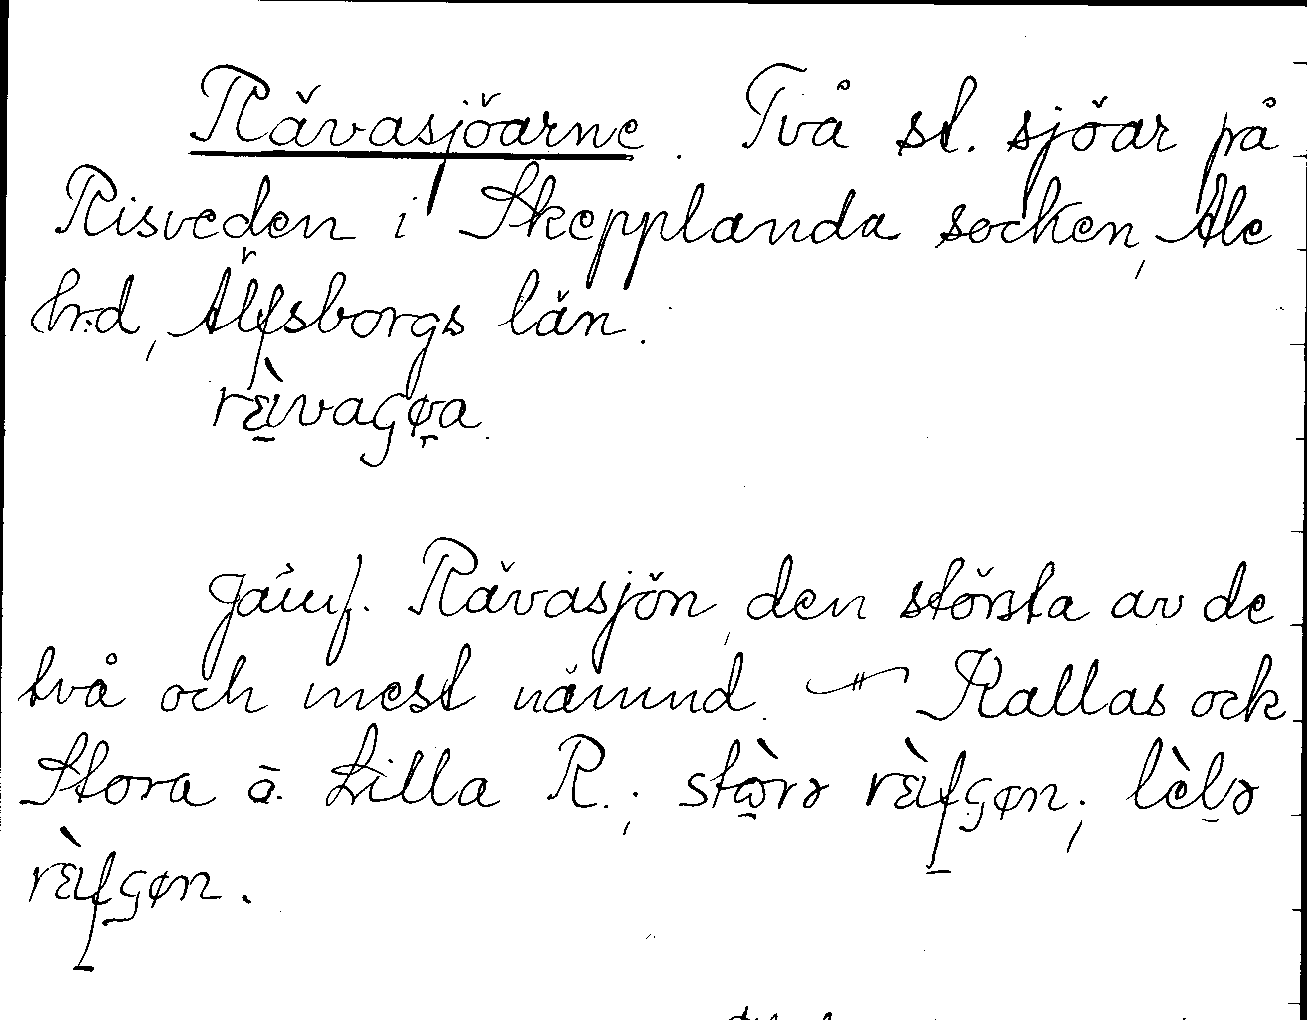 Rävasjöarne. Två st. sjöar på
Risveden i Skepplanda socken, Ale
hrd, Älfsborgs län.
rɛ̀vaɕøa.
Jämf. Rävasjön, den största av de
två och mest nämnd. Kallas ock
Stora o. Lilla R.; stòrə rɛ̀fɕøn; lèlə
rɛ̀fɕøn.